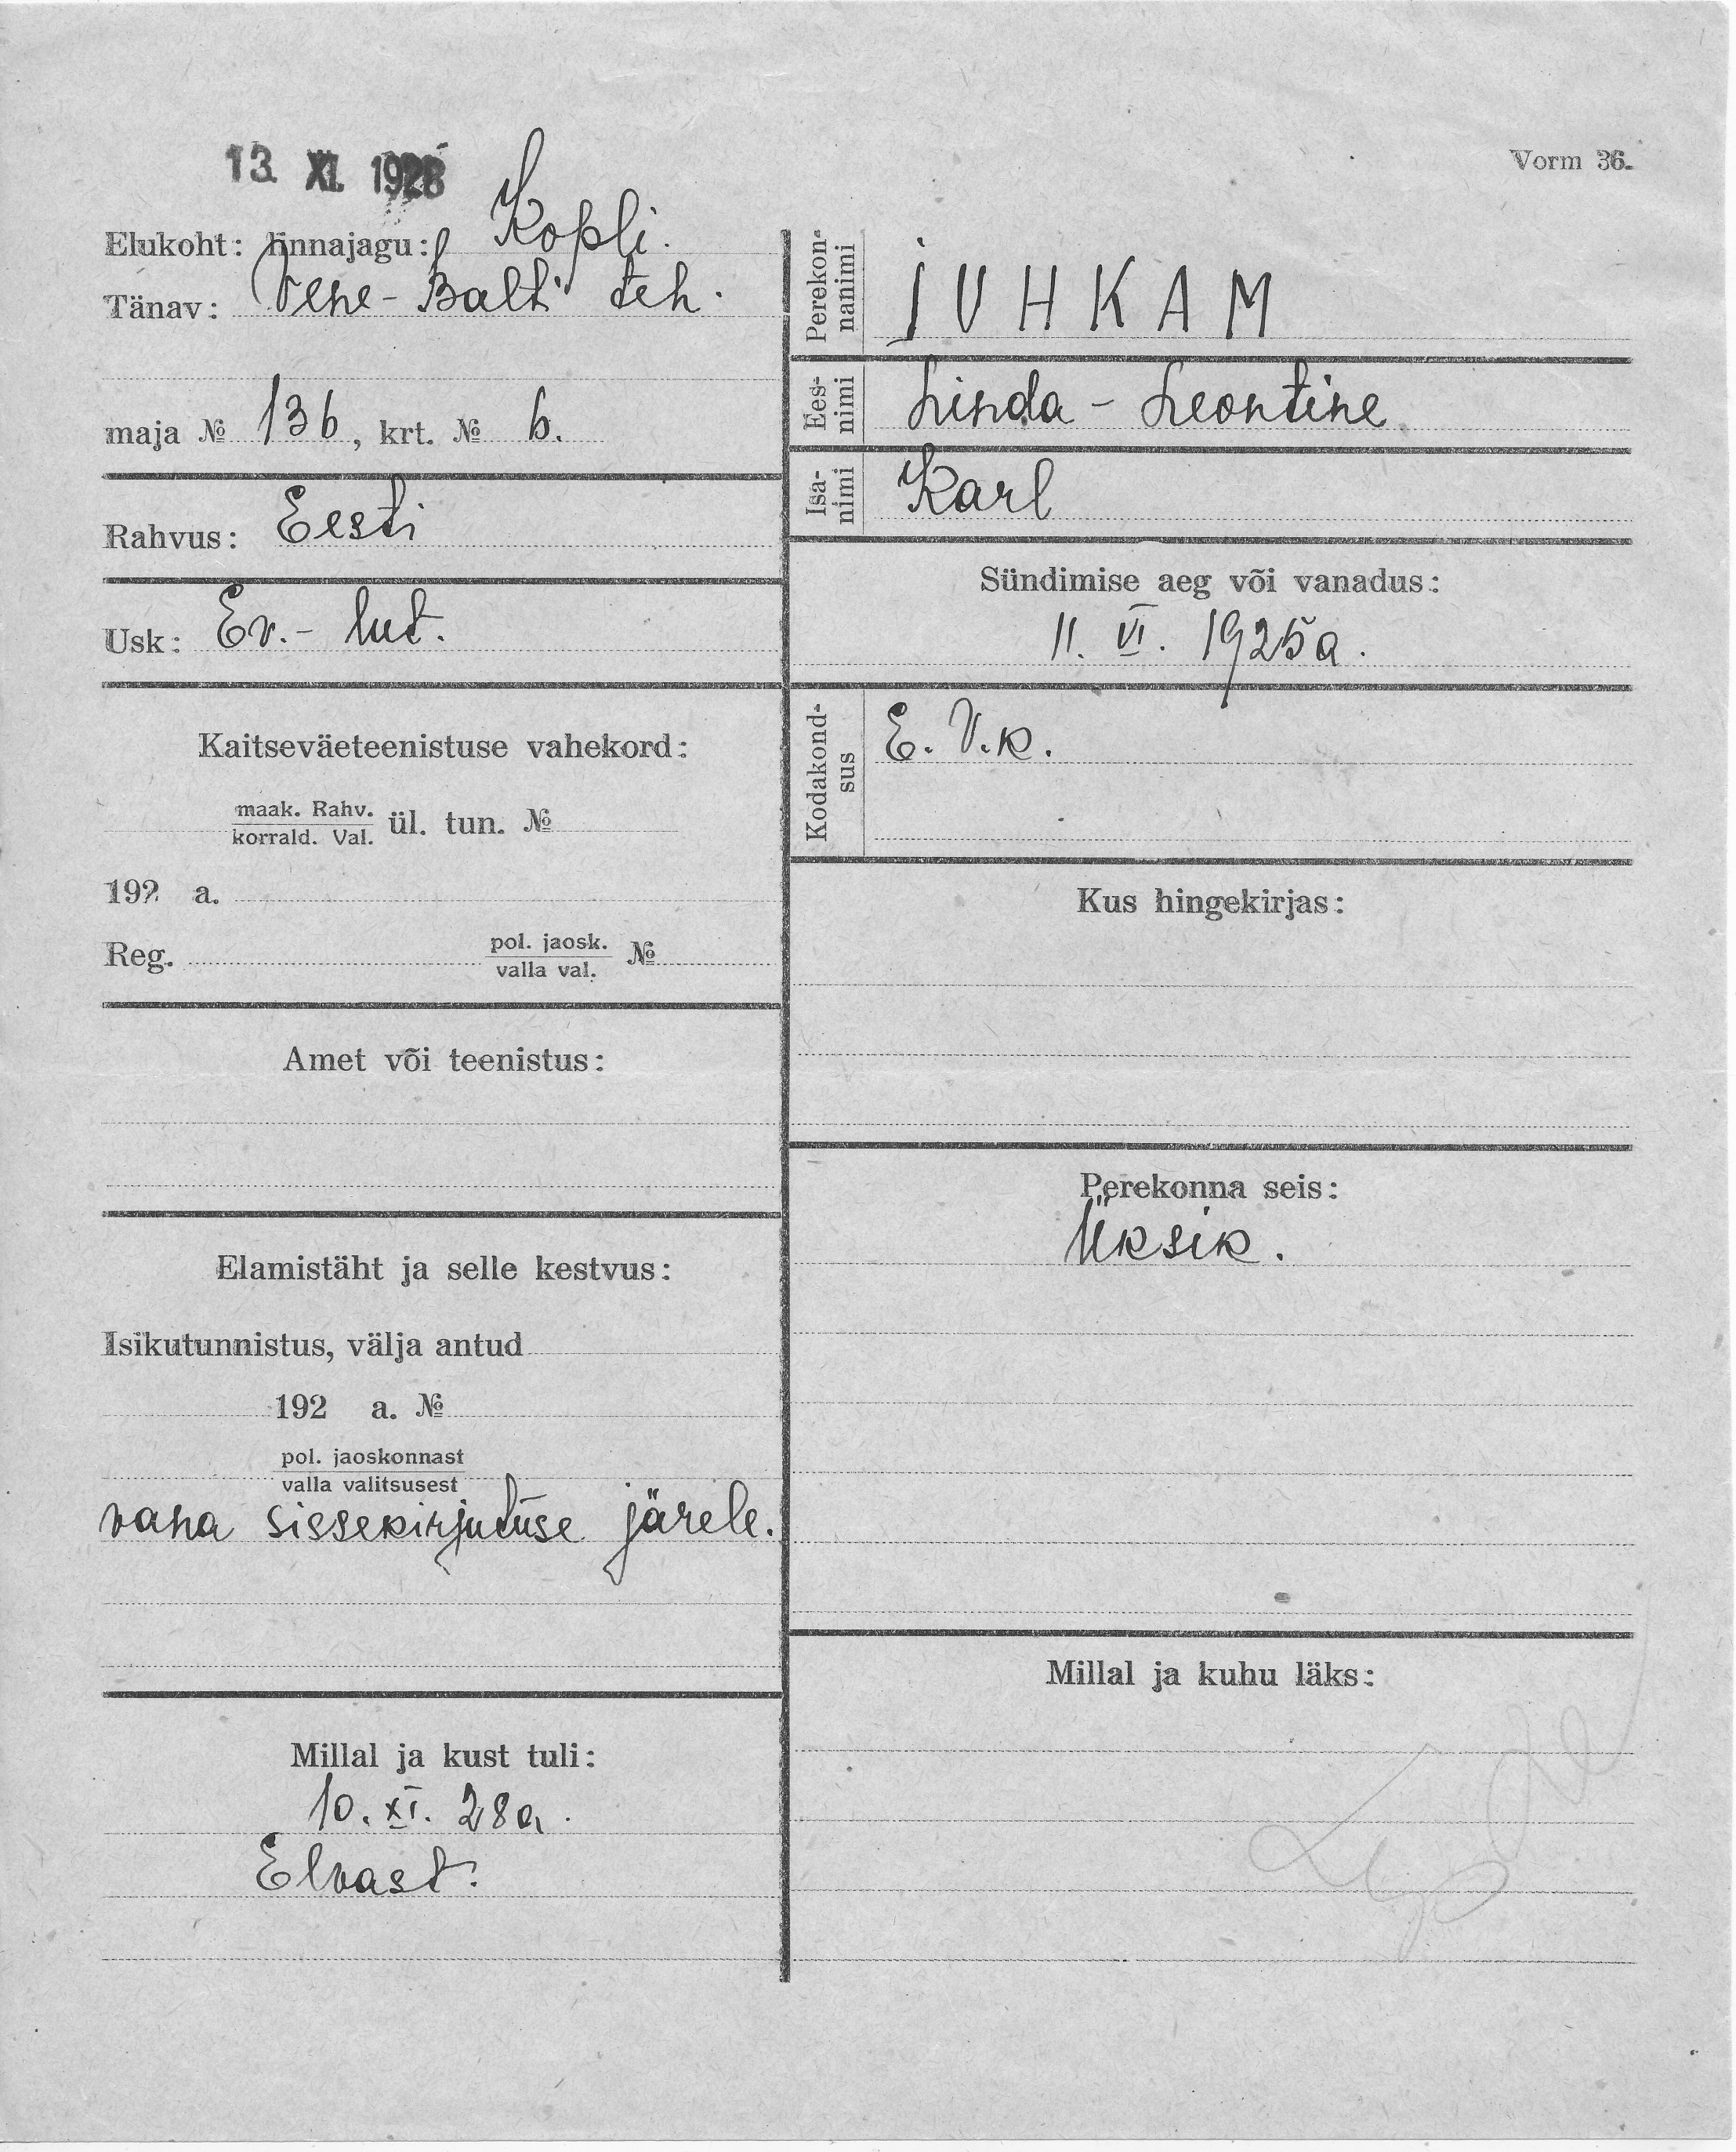 13. XI. 1928
Vorm 36.
Elukoht: linnajagu: Kopli.
Tänav: Vene-Balti teh.
maja № 136, krt. № 6.
Rahvus: Eesti
Usk: Ev.- lut.
Kaitseväeteenistuse vahekord:
maak. Rahv.
korrald. Val. ül. tun. №
192 a.
Reg. pol. jaosk.
valla val. №
Amet või teenistus:
Elamistäht ja selle kestvus:
Isikutunnistus, välja antud
192 a. №
pol. jaoskonnast
valla valitsusest
vana sissekirjutuse järele.
Millal ja kust tuli:
10. XI. 28a.
Elvast.
Perekon-
nanimi JUHKAM
Ees-
nimi Linda - Leontine
Isa-
nimi Karl
Sündimise aeg või vanadus:
11. VI. 1925a.
Kodakond-
sus E. V.k.
Kus hingekirjas:
Perekonna seis:
Üksik.
Millal ja kuhu läks: